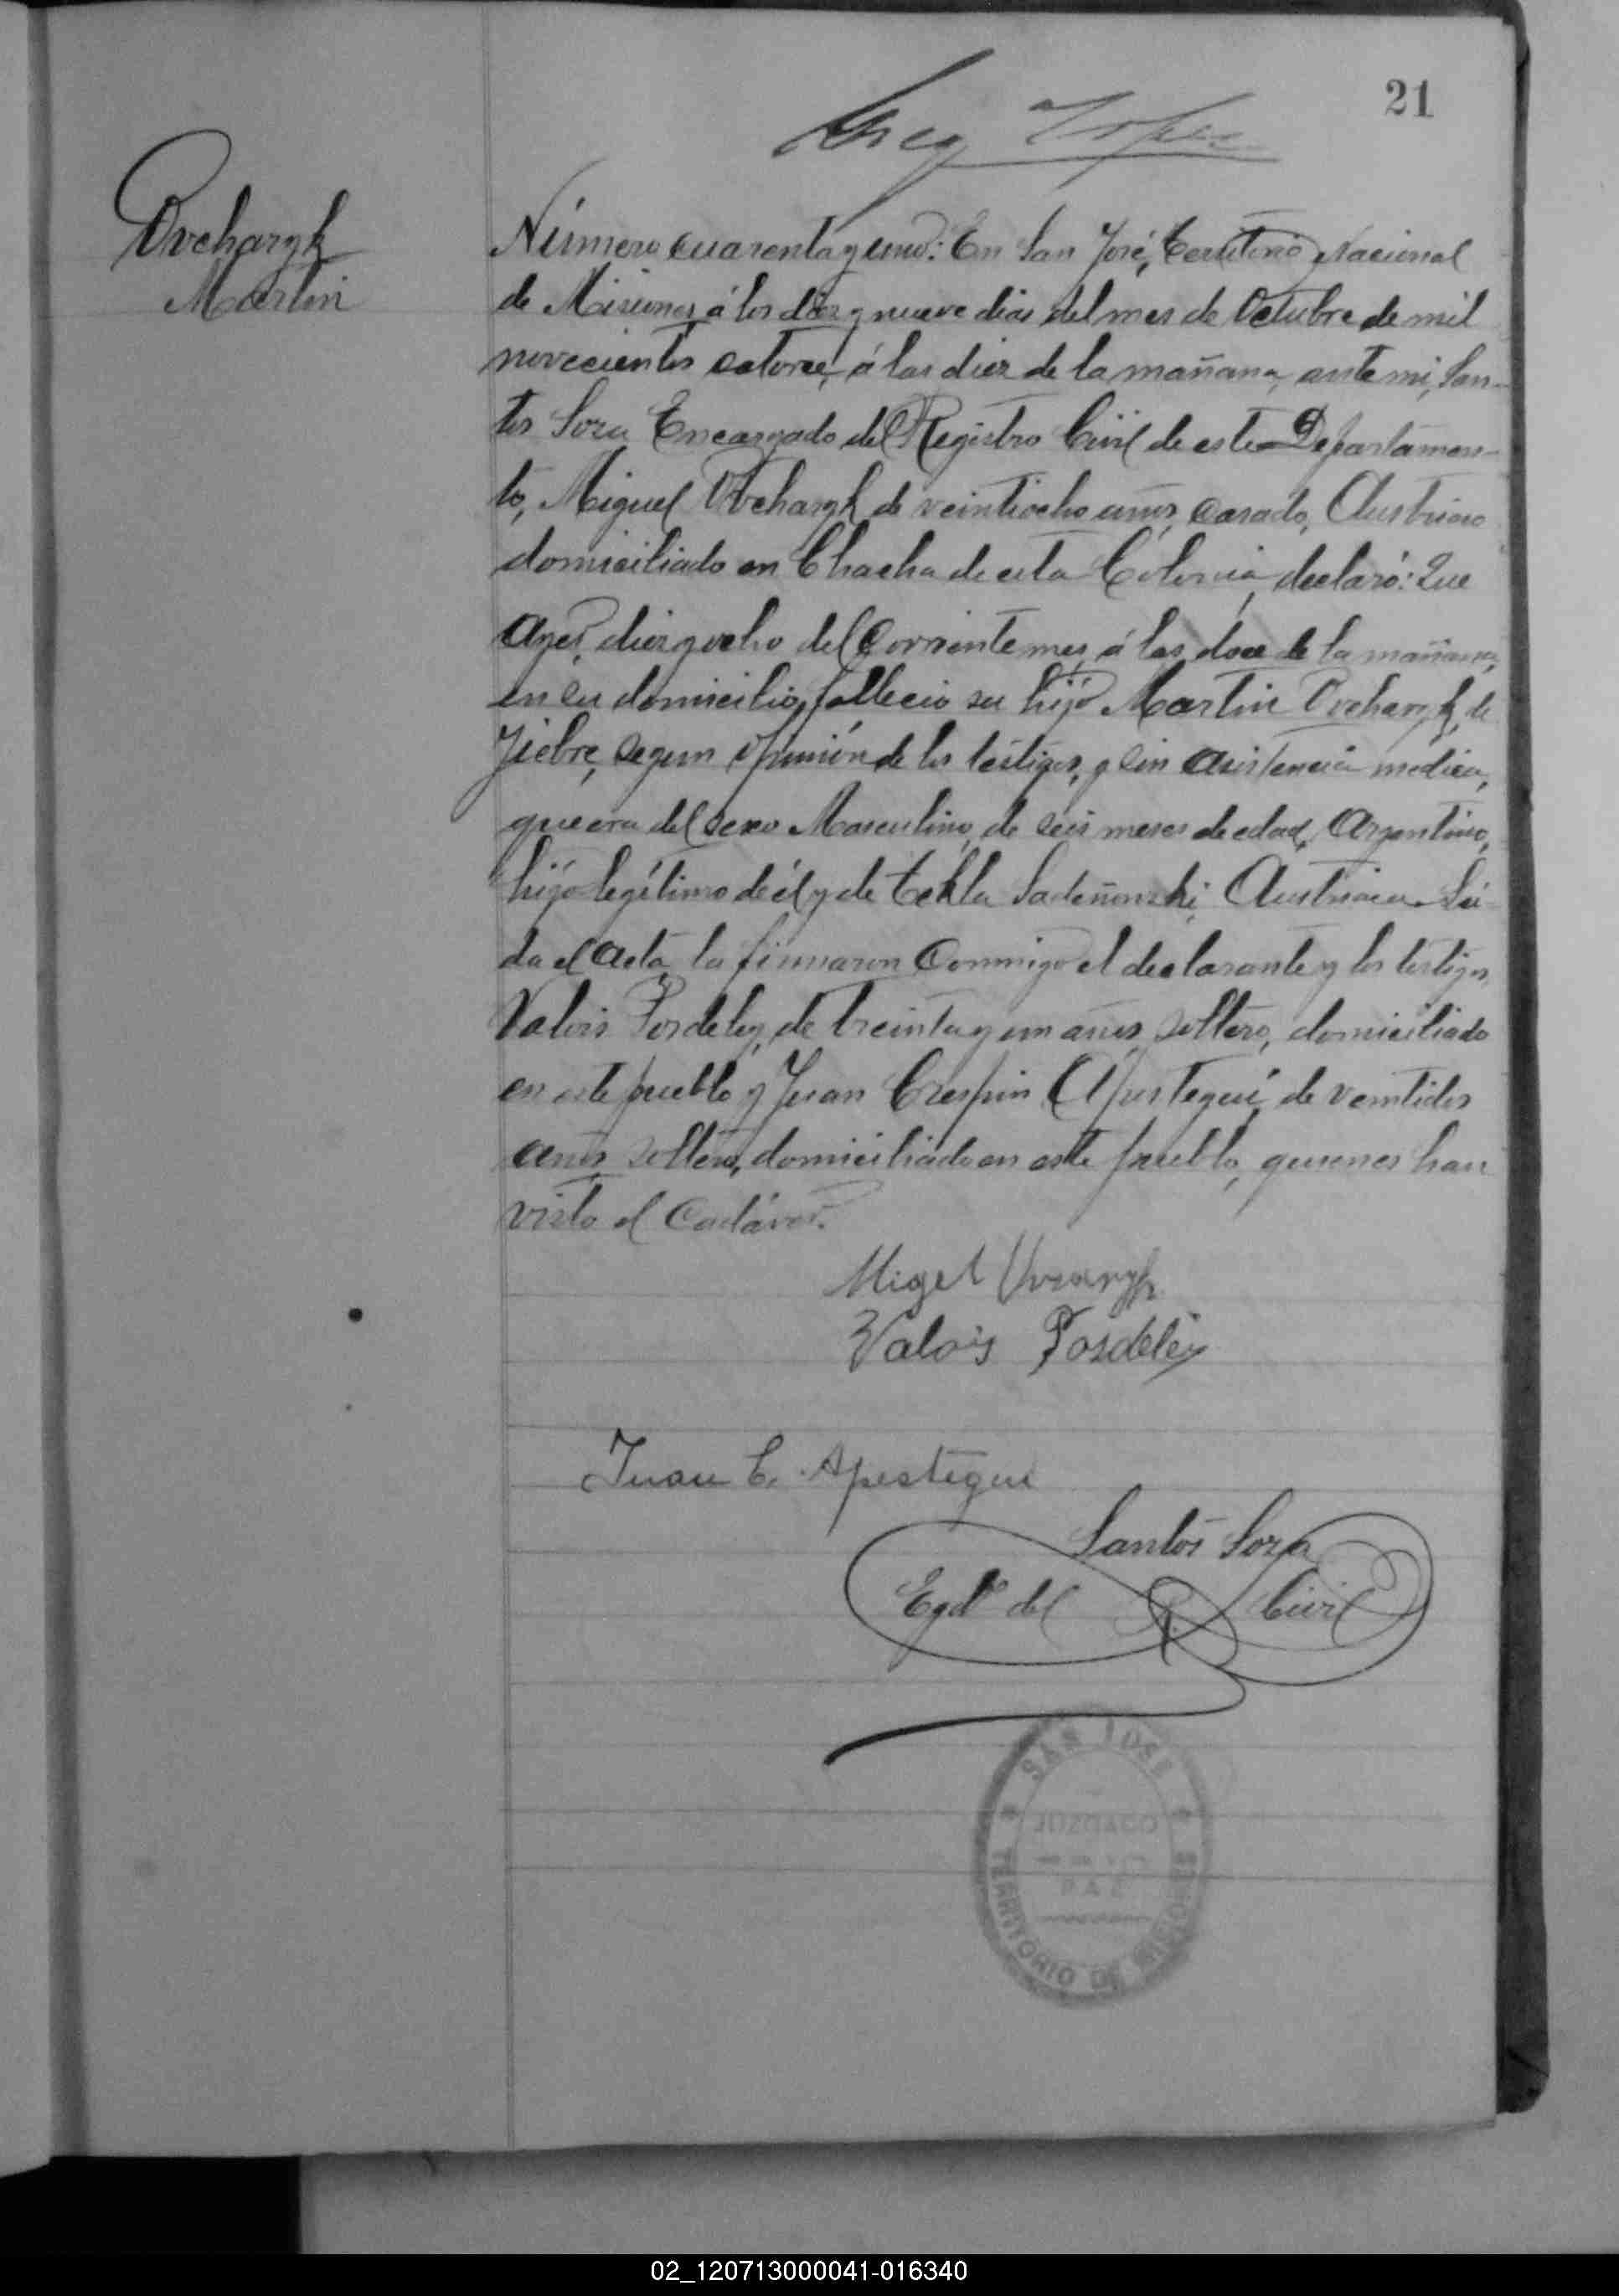 21
Ovcharyk
Martin
Número cuarenta y uno: En San José, Territorio Nacional
de Misiones á los diez y nueve dias del mes de Octubre de mil
novecientos catorce, á las diez de la mañana, ante mi, San-
tos Soza Encargado del Registro Civil de este Departamen-
to, Miguel Ovcharyk de veintiocho años, casado, Austriaco
domiciliado en Chacha de esta Colonia, declaró: Que
Ayer, diez y ocho del Corriente mes, á las doce de la mañana,
en su domicilio, fallecio su hijo Martin Ovcharyk, de
fiebre, segun opinión de los testigos, y sin asistencia médica,
que era del sexo Masculino, de seis meses de edad, Argentino,
hijo legítimo de él y de Tekla Austriaca. Lei-
da el Acta, la firmaron Conmigo el declarante y los testigos,
Valois Posdeley, de treinta y un años, soltero, domiciliado
en este pueblo y Juan Crespin Apestegui, de ventidos
años, soltero, domiciliado en este pueblo, quienes han
visto el Cadáver.
Migel
Valois Posdeley
Juan C. Apestegui
Santos Soza
Egdo del R. Civil
SAN JOSE
JUZGADO
DE
PAZ
TERRITORIO DE MISIONES
02_120713000041-016340